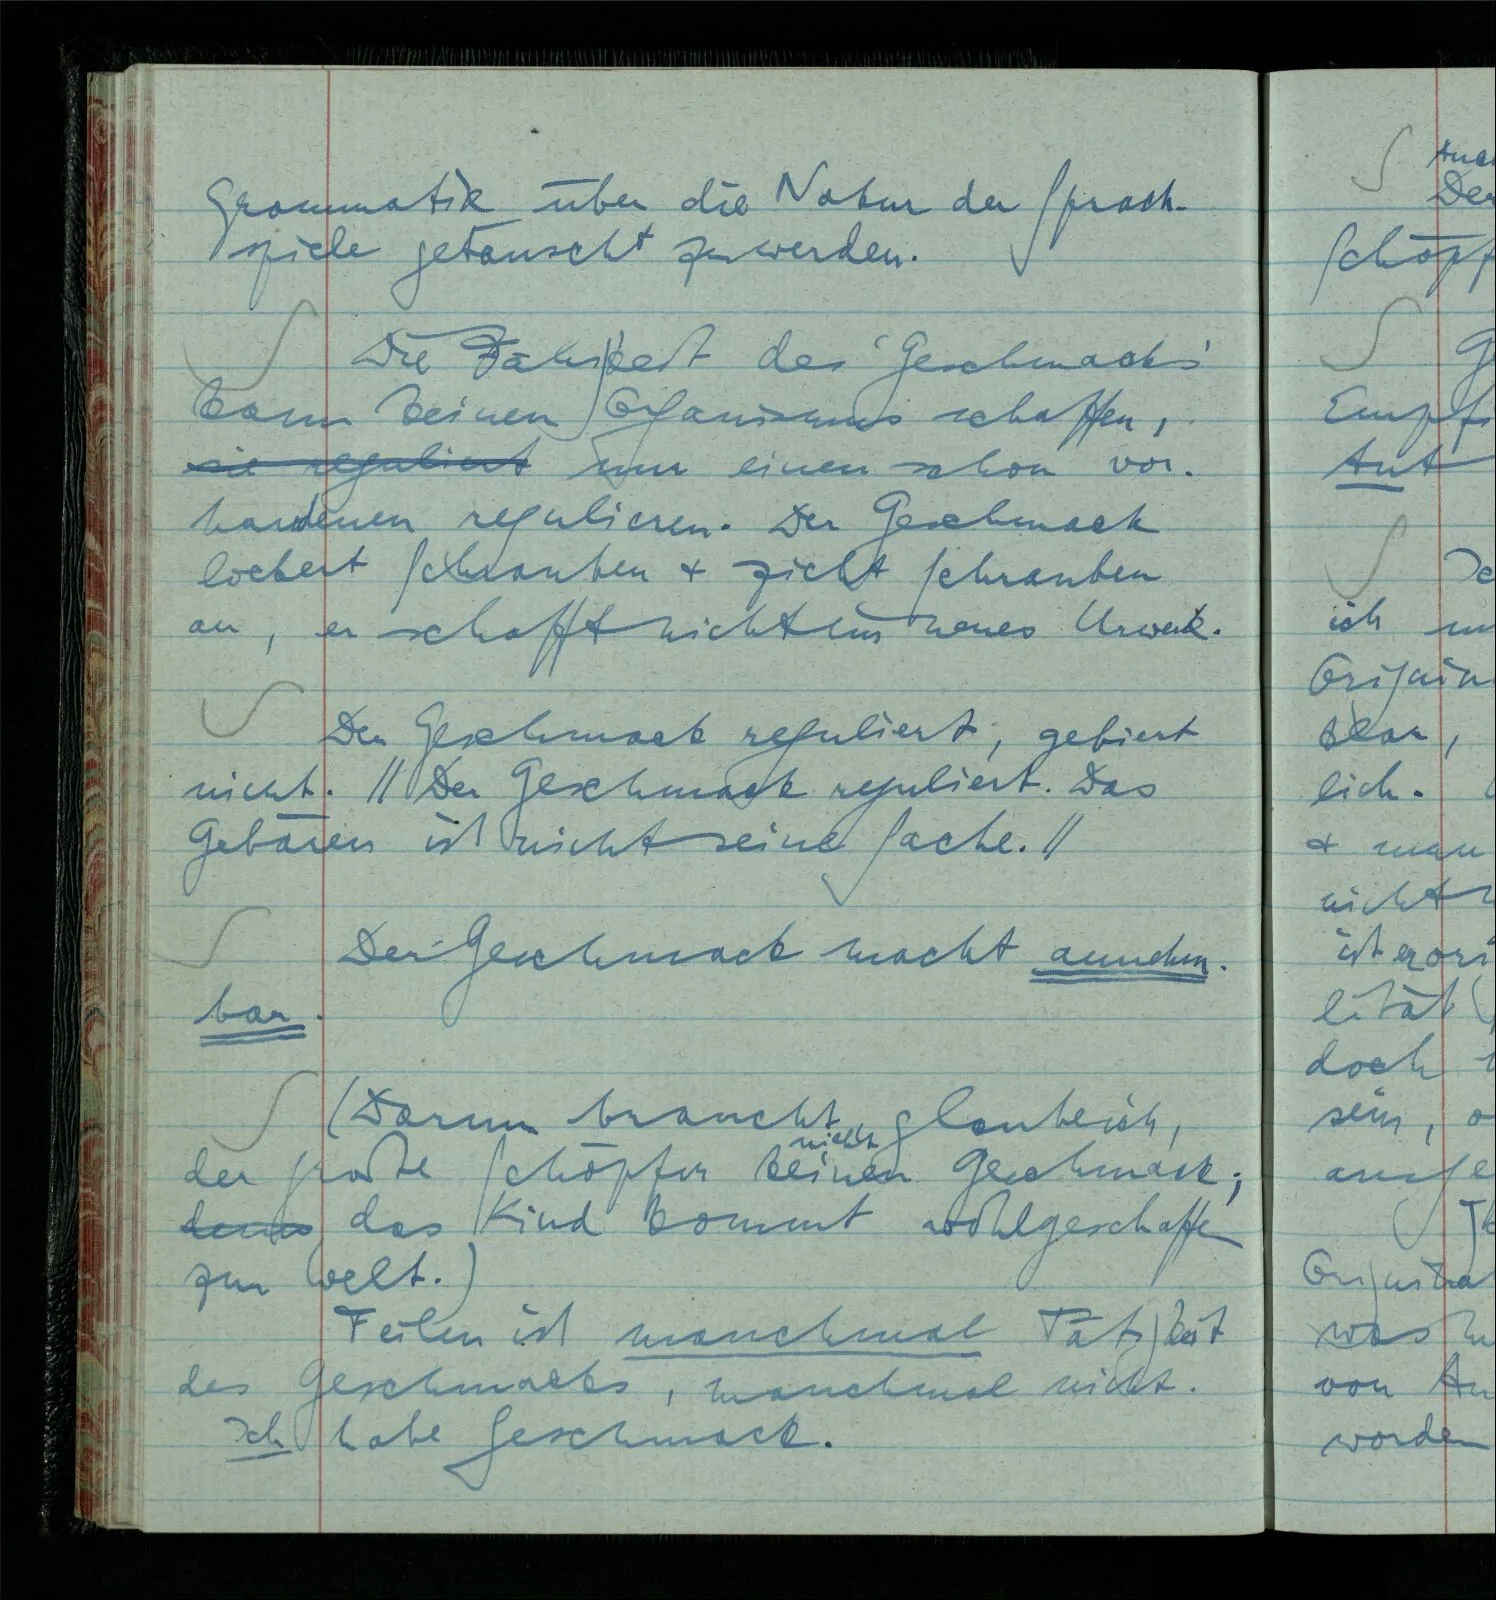 Grammatik über die Natur der Sprach-
spiele getäuscht zu werden.
Die Fähigkeit des 'Geschmacks'
kann keinen Organismus schaffen,
sie reguliert nur einen schon vor-
handenen regulieren. Der Geschmack
lockert Schrauben + zieht Schrauben
an, er schafft nicht ein neues Urwerk.
Der Geschmack reguliert, gebiert
nicht. // Der Geschmack reguliert. Das
Gebären ist nicht seine Sache. //
Der Geschmack macht annehm-
bar.
(Darum braucht, glaube ich,
nicht
der große Schöpfer keinen Geschmack;
das Kind kommt wohlgeschaffen
zur Welt.)
Feilen ist manchmal Tätigkeit
des Geschmacks, manchmal nicht.
Ich habe Geschmack.
Der
Schöpf
G
Empf
Art
ich
klar,
lich.
+ man
nicht
ist
lität
doch
sein,
was
von
worden